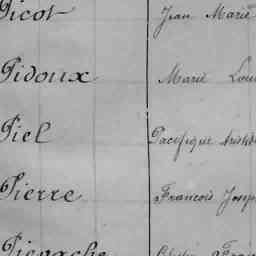 Picot Jean Marie
Pidoux Marie Loui
Piel Pacifique Aristide
Pierre François Josep
Pienache